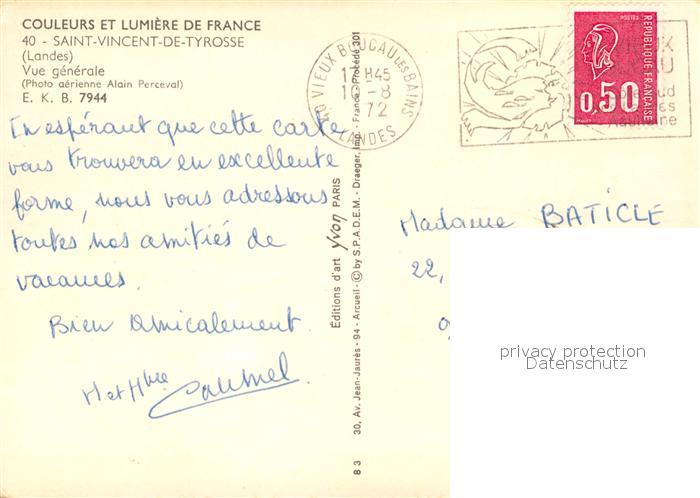 COULEURS ET LUMIÈRE DE FRANCE
40 - SAINT-VINCENT-DE-TYROSSE
(Landes)
Vue générale
(Photo aérienne Alain Perceval)
E. K. B. 7944
En espérant que cette carte
vous trouvera en excellente
forme, nous vous adressons
toutes nos amitiés de
vacances.
Bien amicalement.
M et Mme
Editions d'art yvon PARIS
30, Av. Jean-Jaurès - 94 - Arcueil - © by S.P.A.D.E.M. - Draeger, Imp. - France - Procédé 301
8 3
40 VIEUX BOUCAU LES BAINS
LANDES
H45
-8
72
POSTES
REPUBLIQUE FRANÇAISE
0,50
Madame BATICLE
22,
privacy protection
Datenschutz